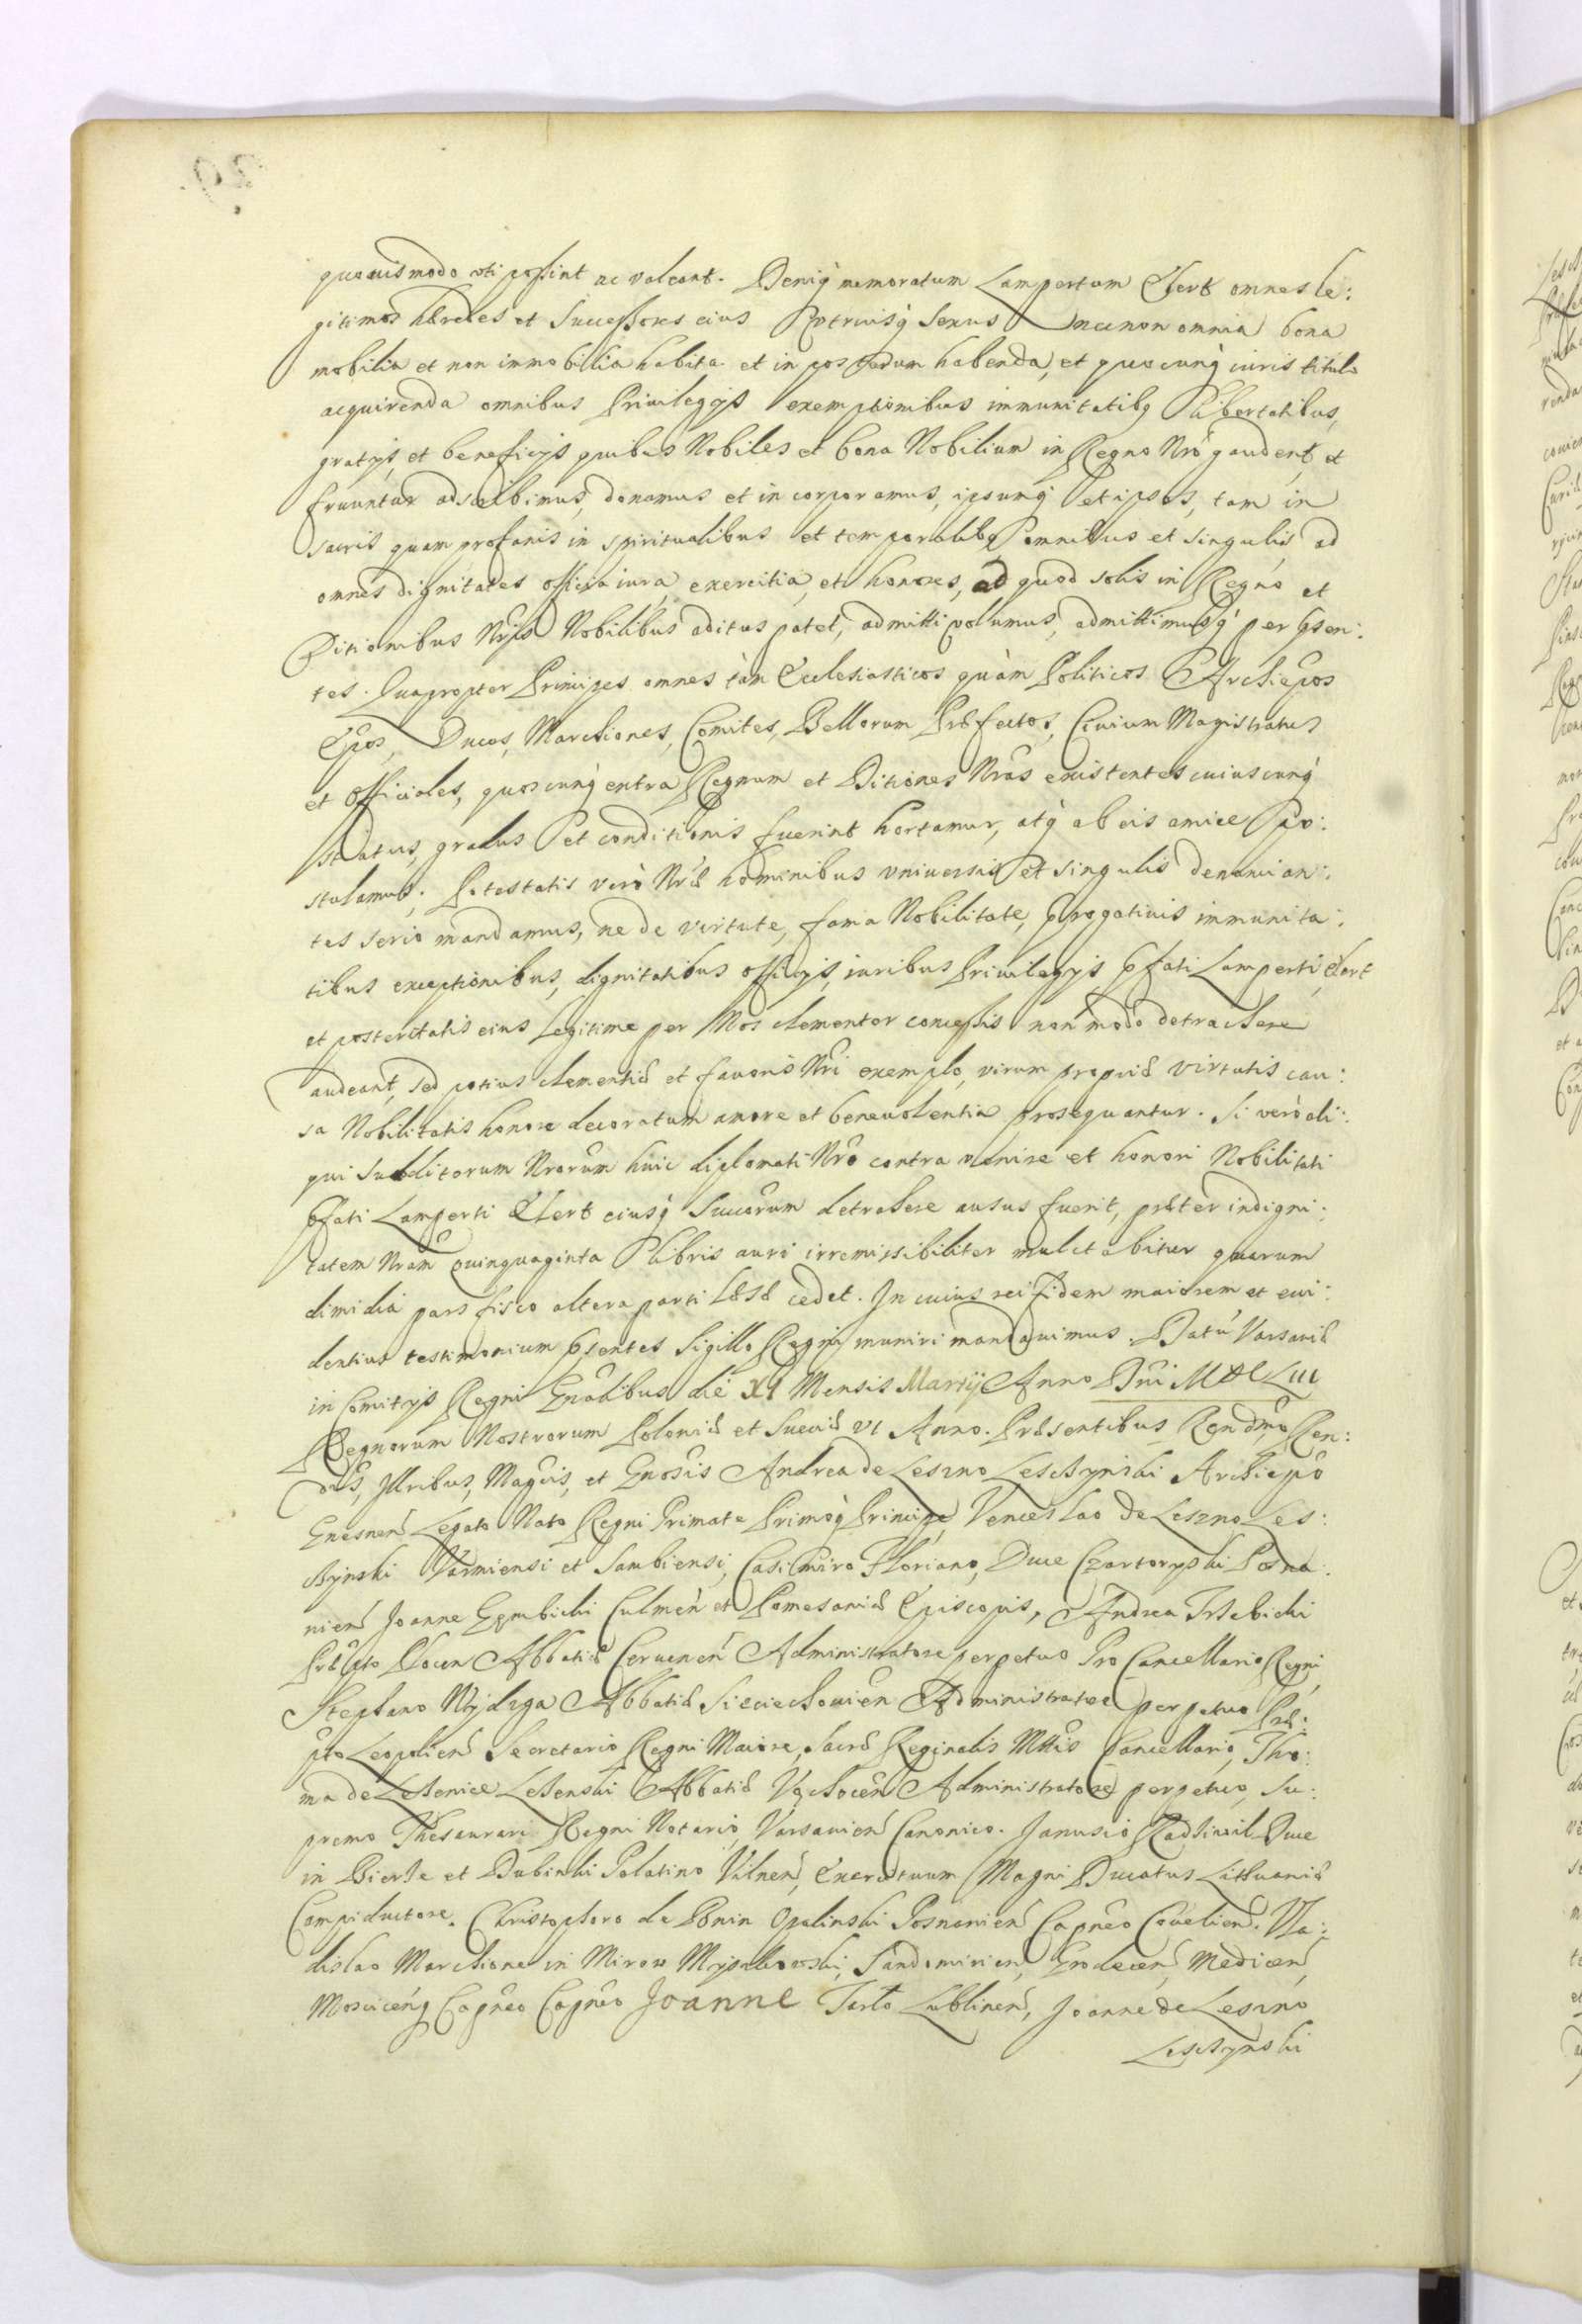 quouismodo uti possint ac valeant. Deniq memoratum Lampertum Elert omnes le:
gitimos hæredes et Successores eius Vtriusq Sexus necnon omnia bona
mobilia et non immobilia habita et in posterum habenda, et quocunq iuris titulo
acquirenda omnibus Priuilegijs exemptionibus immunitatibq libertatibus,
gratijs, et beneficijs quibus Nobiles et bona Nobilium in Regno Nrô gaudent, et
fruuntur adscribimus, donamus et incorporamus, ipsumq et ipsos, tam in
sacris quam profanis in spiritualibus et temporalibq omnibus et singulis ad
omnes dignitates officia iura, exercitia, et honores, ad quod solis in Regno et
Ditionibus Nrîs Nobilibus aditus patet, admitti volumus, admittimusq per psen:
tes. Quapropter Principes omnes tàm Ecclesiasticos quàm Politicos Archiepos
Epos, Duces, Marchiones, Comites, Bellorum Præfectos, Ciuium Magistratus
et Officiales, quoscunq extra Regnum et Ditiones Nrâs existentes cuiuscunq
status, gradus et conditionis fuerint hortamur, atq ab eis amice po:
stulamus. Potestatis verò Nræ hominibus vniuersis et singulis denuncian:
tes serio mandamus, ne de virtute, fama Nobilitate, prrogatiuis immunita:
tibus exceptionibus, dignitatibus officijs, iuribus Priuilegijs pfati Lamperti Elert
et posteritatis eius legitime per Nos clementer concessis non modo detrachere
audeant, sed potius clementiæ et fauoris Nri exemplo, virum propriæ virtutis cau:
sa Nobilitatis honore decoratum amore et beneuolentia prosequantur. Si verò ali:
qui Subditorum Nrorum huic diplomati Nrô contra venire et honori Nobilitati
pfati Lamperti Elert eiusq Succorum detrahere ausus fuerit, præter indigni:
tatem Nram quinquaginta libris auri irremissibiliter mulctabitur quarum
dimidia pars fisco altera parti læsæ cedet. In cuius rei fidem maiorem et eui:
dentius testimonium psentes Sigillo Regni muniri mandauimus. Datu Varsauiæ
in Comitijs Regni Gnâlibus die XI Mensis Martij Anno Dni MDCLIII
Regnorum Nostrorum Poloniæ et Sueciæ VI Anno. Præsentibus Rendmo Ren:
dis, Illribus, Magcis, et Gnosis Andrea de Leszno Leschynski Archiepo
Gnesnen Legato Nato Regni Primate Primoq Principe, Venceslao de Leszno Les:
chynski Varmiensi et Sambiensi, Casimiro Floriano, Duce Czartoryski Posna:
nien Joanne Gembicki Culmen et Pomesaniæ Episcopis, Andrea Trzebicki
Præpto Plocen Abbatiæ Ceruenen Administratore perpetuo Pro Cancellario Regni,
Stephano Wydzga Abbatiæ Sieciechouien Administratore perpetuo Præ:
pto Leopolien Secretario Regni Maiore, Sacræ Reginalis Mttis Cancellario, Tho:
ma de Lezenice Lezenski Abbatiæ Vąchocen Administratore perpetuo, Su:
premo Thesaurari Regni Notario, Varsauien Canonico. Janusio Radziwil Duce
in Bierże et Dubinki Palatino Vilnen, Exercituum Magni Ducatus Lithuaniæ
Campiductore. Christophoro de Bnin Opalinski Posnanien Capneo Coueliens. Vla:
dislao Marchione in Mirow Myszkowski, Sandomirien, Grodecen, Medicen,
Mosciceńq Capneo Capneo Joanne Tarło Lublinen, Joanne de Leszno
Leschynski